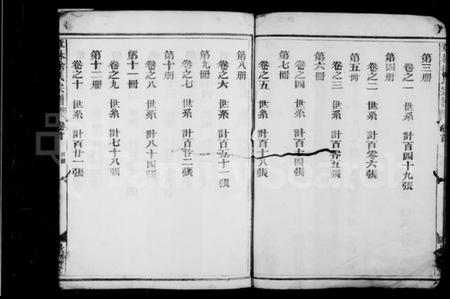 第三册
卷之一 世系 計百四十九張
第四册
卷之二 世系 計百零六張
第五册
卷之三 世系 計百廿五張
第六册
卷之四 世系 計百十四張
第七册
卷之五 世系 計百十八張
第八册
卷之六 世系 計百五十一張
第九册
卷之七 世系 計百廿二張
第十册
卷之八 世系 計八十四張
第十一册
卷之九 世系 計七十八張
第十二册
卷之十 世系 計百廿一張